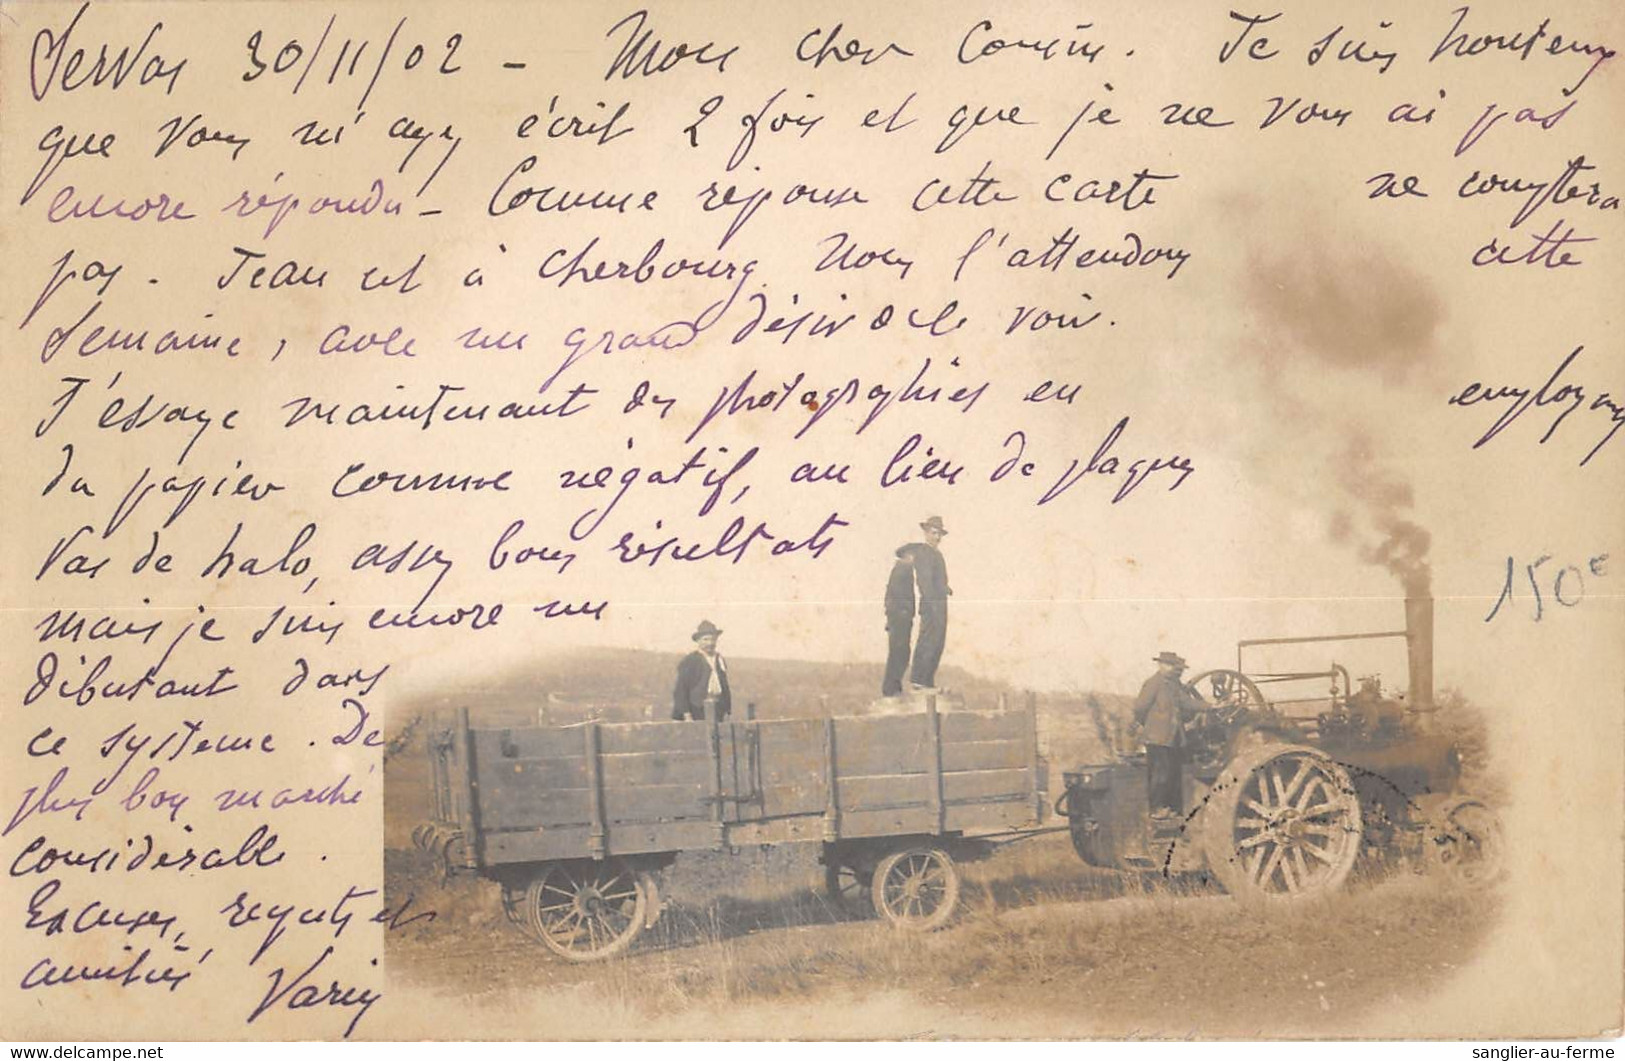 Servas 30/11/02 - Mon cher Cousin. Je suis honteux
que vous m'ayez écrit 2 fois et que je ne vous ai pas
encore répondu - Comme réponse cette carte ne comptera
pas. Jean est à Cherbourg. Nous l'attendons cette
semaine, avec un grand désir de le voir.
J'essaye maintenant des photographies en employant
du papier comme négatif, au lieu de plaques
Pas de halo, assez bons résultats
mais je suis encore un
débutant dans
ce systeme. De
plus bon marché
considérable.
Excuses, regrets et
amitiés
150€
sanglier-au-ferme
www.delcampe.net